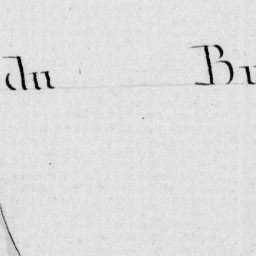 du Bu